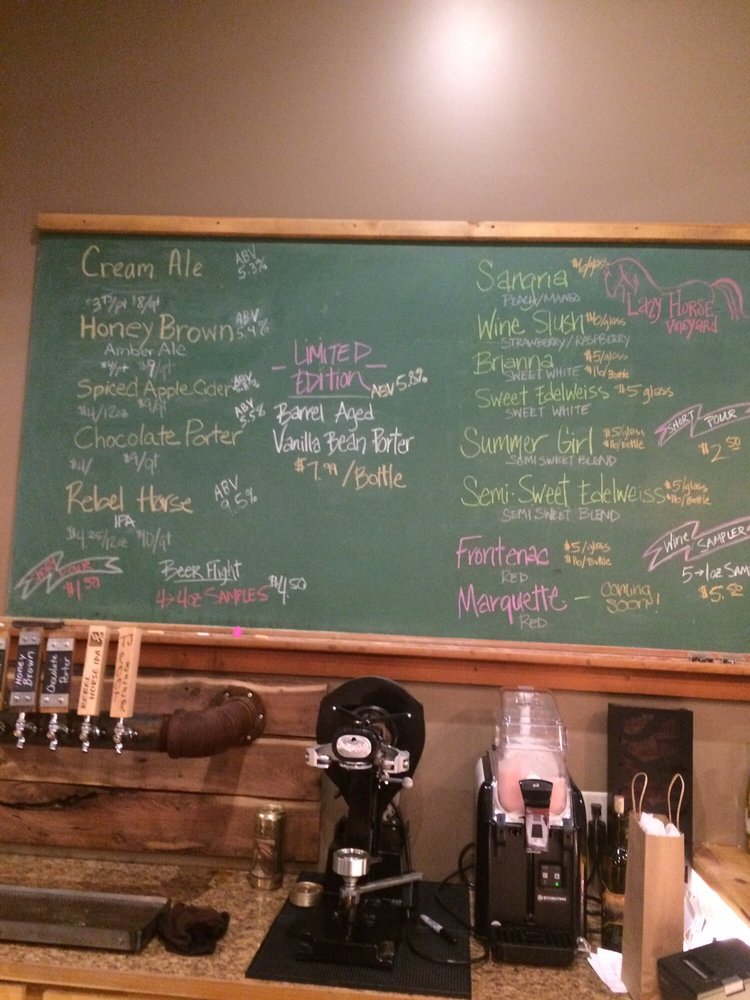 Cream Ale
ABV
5.3%
$8/qt
Honey Brown
ABV
5.4%
Amber Ale
$9/qt
Spiced Apple Cider
ABV
$4/12oz
Chocolate Porter
ABV
5.5%
$9/qt
Rebel Horse
IPA
ABV
9.5%
$10/qt
$1.50
Beer Flight
$4.50
4→4oz SAMPLES
LIMITED
EDITION
ABV 5.8%
Barrel Aged
Vanilla Bean Porter
$7.99/Bottle
Sangria
PEACH/MANGO
Wine Slush $6/glass
STRAWBERRY/RASPBERRY
Brianna $5/glass
SWEET WHITE $16/Bottle
Sweet Edelweiss $5 glass
SWEET WHITE
Summer Girl $5/glass
$16/Bottle
SEMI SWEET BLEND
Semi-Sweet Edelweiss $5/glass
$16/Bottle
SEMI SWEET BLEND
Frontenac $5/glass
$16/Bottle
RED
Marquette - Coming
soon!
RED
LAZY HORSE
VINEYARD
SHORT POUR
$2.50
WINE SAMPLER
5→1oz SAM
Honey
Brown
Chocolate
Porter
REBEL
HORSE IPA